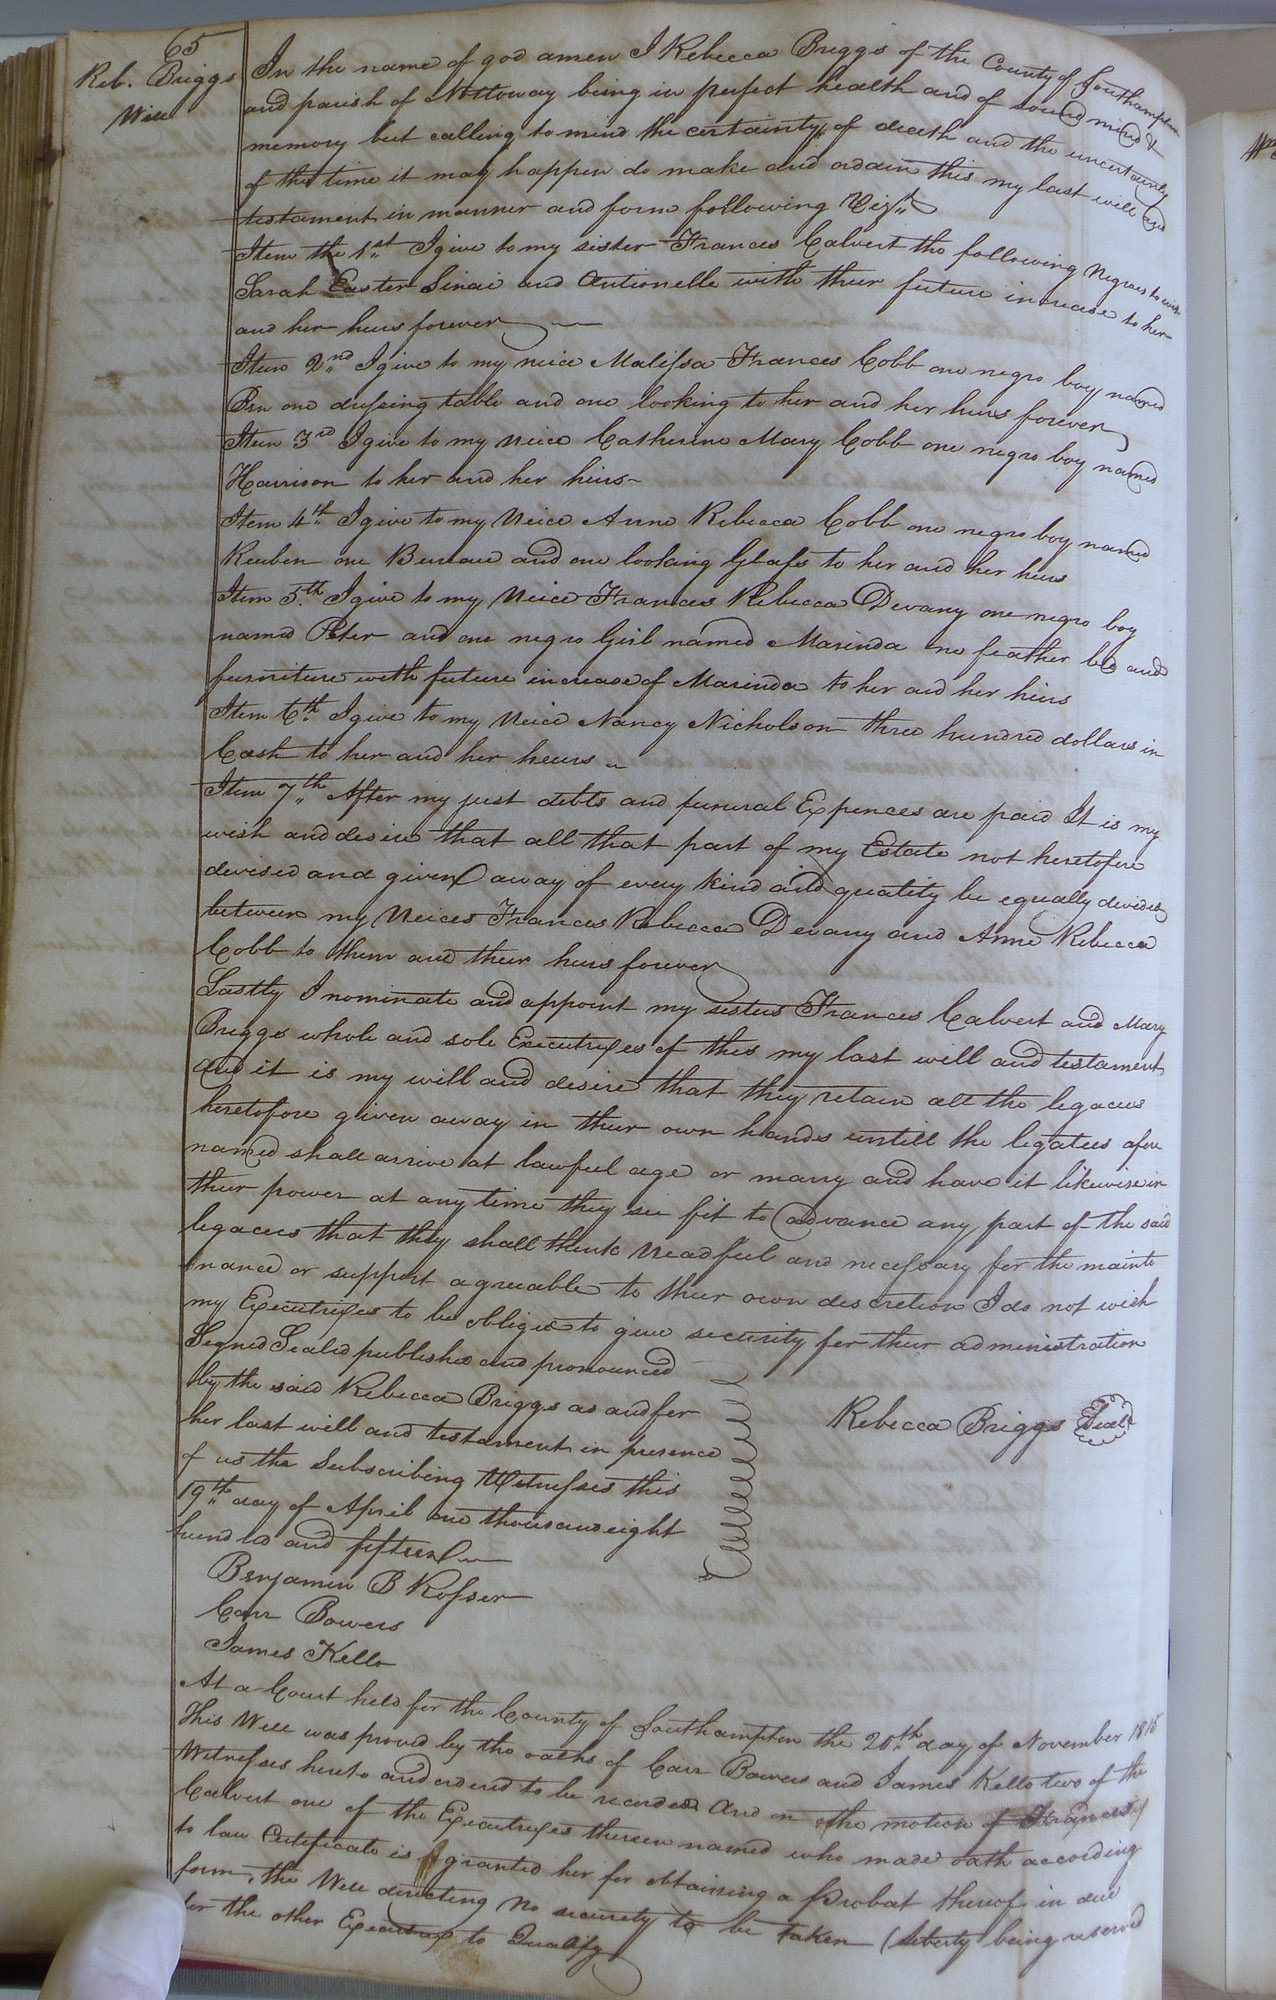 65
Reb. Briggs
Will
In the name of god amen I Rebecca Briggs of the County of Southampton
and parish of Nottoway being in perfect health and of sound mind &
memory but calling to mind the certainty of death and the uncertainty
of the time it may happen do make and ordain this my last will and
testament in manner and form following Viz.
Item the 1st I give to my sister Frances Calvert the following Negroes to wit
Sarah Easter Sinai and Antionelle with their future increase to her
and her heirs forever
Item 2nd I give to my neice Malissa Frances Cobb one negro boy named
one dressing table and one looking to her and her heirs forever
Item 3rd I give to my Neice Catherine Mary Cobb one negro boy named
Harrison to her and her heirs
Item 4th I give to my Neice Anne Rebecca Cobb one negro boy named
Reuben one Bureau and one looking Glass to her and her heirs
Item 5th I give to my Neice Frances Rebecca Devany one negro boy
named Peter and one negro Girl named Marinda one feather bed and
furniture with future increase of Marinda to her and her heirs
Item 6th I give to my Neice Nancy Nicholson three hundred dollars in
Cash to her and her heirs
Item 7th After my just debts and funural Expences are paid It is my
wish and desire that all that part of my Estate not heretofore
devised and given away of every kind and quality be equally divided
between my Neices Frances Rebecca Devany and Anne Rebecca
Cobb to them and their heirs forever
Lastly I nominate and appoint my sisters Frances Calvert and Mary
Briggs whole and sole Executrixes of this my last will and testament
and it is my will and desire that they retain all the legacies
heretofore given away in their own hands untill the legatees afore
named shall arrive at lawful age or marry and have it likewise in
their power at any time they see fit to advance any part of the said
legacies that they shall think neadful and necessary for the mainte
nance or support agreeable to their own discretion I do not wish
my Executrixes to be obliged to give security for their administration
Signed Sealed published and pronounced
by the said Rebecca Briggs as and for
her last will and testament in presence
of us the Subscribing Witnesses this
19th day of April one thousand eight
hundred and fifteen
Rebecca Briggs Seal
Benjamin B Rosser
Carr Bowers
James Kello
At a Court held for the County of Southampton the 20th day of November 1815
This Will was proved by the oaths of Carr Bowers and James Kello two of the
Witnesses hereto and ordered to be recorded And on the motion of Frances
Calvert one of the Executrixes therein named who made oath according
to law Certificate is granted her for obtaining a Probat thereof in due
form, the Will directing no security to be taken (liberty being reserved
for the other Executrix to Qualify